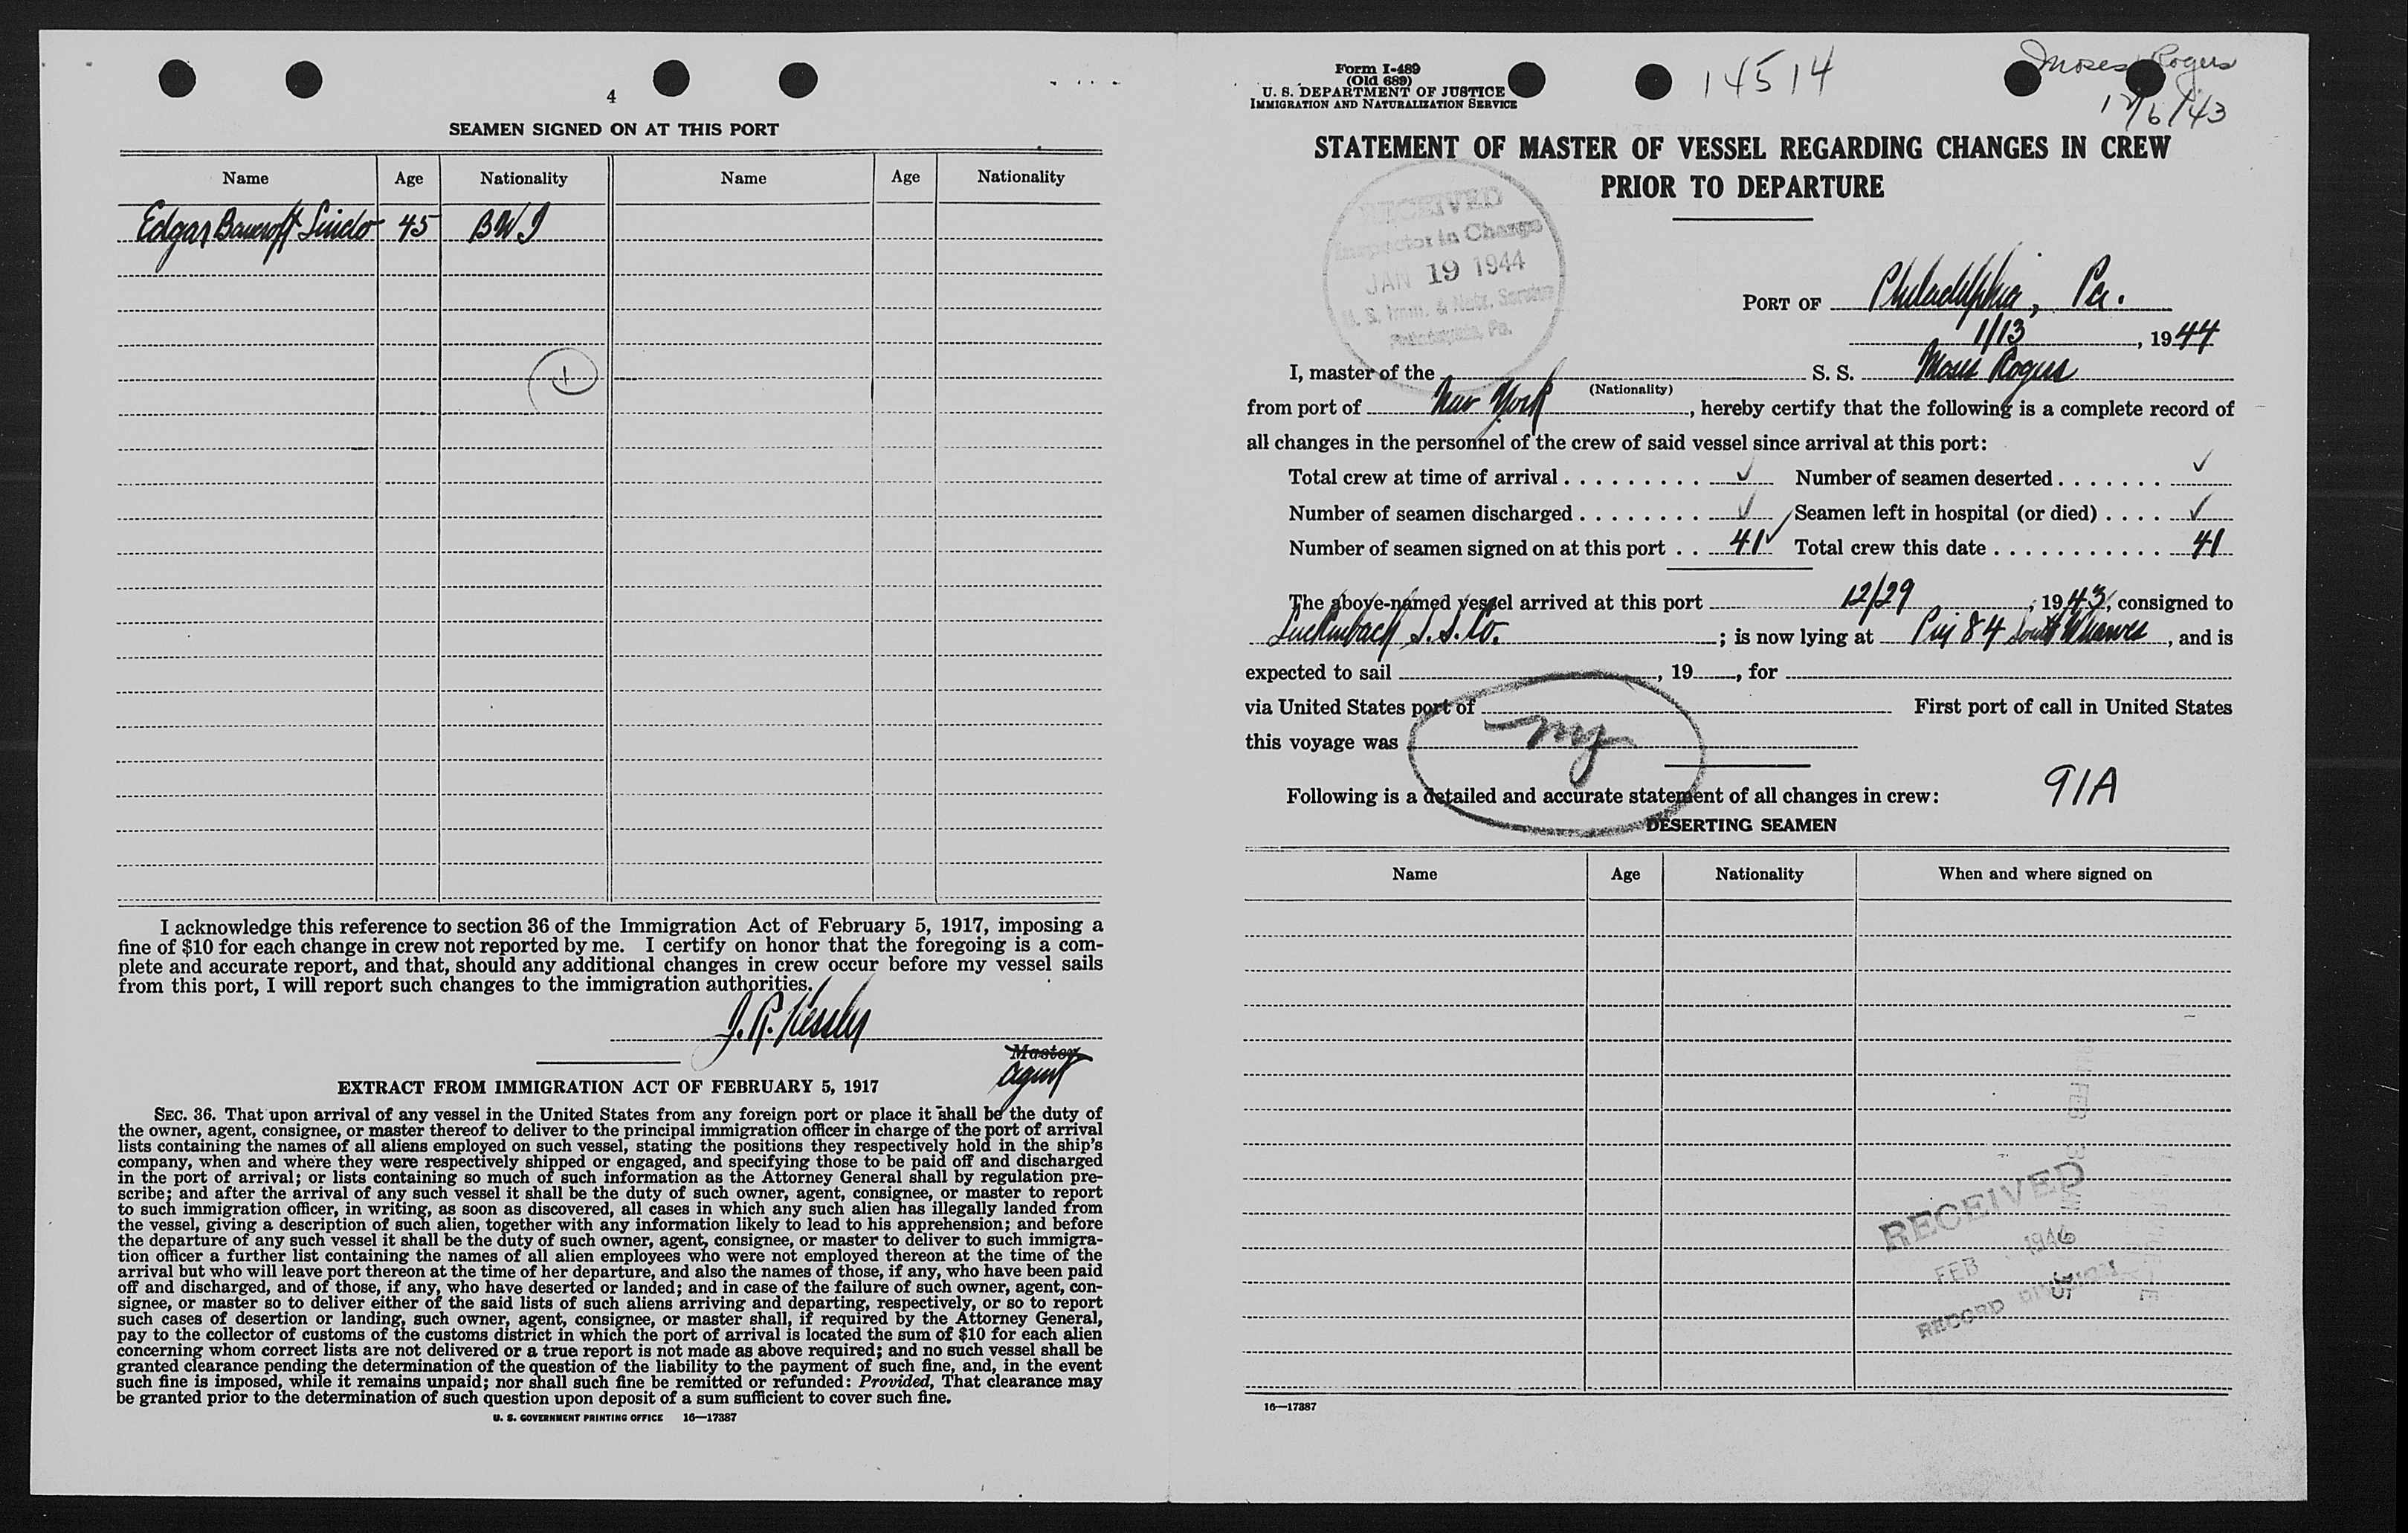 4
SEAMEN SIGNED ON AT THIS PORT
Name Age Nationality Name Age Nationality
Edgar Bancroft Lindo 45 B W I
1
I acknowledge this reference to section 36 of the Immigration Act of February 5, 1917, imposing a
fine of $10 for each change in crew not reported by me. I certify on honor that the foregoing is a com-
plete and accurate report, and that, should any additional changes in crew occur before my vessel sails
from this port, I will report such changes to the immigration authorities.
J. R. Kessler
Master
Agent
EXTRACT FROM IMMIGRATION ACT OF FEBRUARY 5, 1917
SEC. 36. That upon arrival of any vessel in the United States from any foreign port or place it shall be the duty of
the owner, agent, consignee, or master thereof to deliver to the principal immigration officer in charge of the port of arrival
lists containing the names of all aliens employed on such vessel, stating the positions they respectively hold in the ship's
company, when and where they were respectively shipped or engaged, and specifying those to be paid off and discharged
in the port of arrival; or lists containing so much of such information as the Attorney General shall by regulation pre-
scribe; and after the arrival of any such vessel it shall be the duty of such owner, agent, consignee, or master to report
to such immigration officer, in writing, as soon as discovered, all cases in which any such alien has illegally landed from
the vessel, giving a description of such alien, together with any information likely to lead to his apprehension; and before
the departure of any such vessel it shall be the duty of such owner, agent, consignee, or master to deliver to such immigra-
tion officer a further list containing the names of all alien employees who were not employed thereon at the time of the
arrival but who will leave port thereon at the time of her departure, and also the names of those, if any, who have been paid
off and discharged, and of those, if any, who have deserted or landed; and in case of the failure of such owner, agent, con-
signee, or master so to deliver either of the said lists of such aliens arriving and departing, respectively, or so to report
such cases of desertion or landing, such owner, agent, consignee, or master shall, if required by the Attorney General,
pay to the collector of customs of the customs district in which the port of arrival is located the sum of $10 for each alien
concerning whom correct lists are not delivered or a true report is not made as above required; and no such vessel shall be
granted clearance pending the determination of the question of the liability to the payment of such fine, and, in the event
such fine is imposed, while it remains unpaid; nor shall such fine be remitted or refunded: Provided, That clearance may
be granted prior to the determination of such question upon deposit of a sum sufficient to cover such fine.
U. S. GOVERNMENT PRINTING OFFICE 16—17387
Form I-489
(Old 689)
U. S. DEPARTMENT OF JUSTICE
IMMIGRATION AND NATURALIZATION SERVICE
14514
Moses Rogers
12/6/43
STATEMENT OF MASTER OF VESSEL REGARDING CHANGES IN CREW
PRIOR TO DEPARTURE
RECEIVED
Inspector in Charge
JAN 19 1944
U. S. Imm. & Natz. Service
Philadelphia, Pa.
PORT OF Philadelphia, Pa.
1/13, 1944
I, master of the S. S. Moses Rogers
(Nationality)
from port of New York, hereby certify that the following is a complete record of
all changes in the personnel of the crew of said vessel since arrival at this port:
Total crew at time of arrival ✓ Number of seamen deserted ✓
Number of seamen discharged ✓ Seamen left in hospital (or died) ✓
Number of seamen signed on at this port 41 ✓ Total crew this date 41
The above-named vessel arrived at this port 12/29, 1943, consigned to
Luckenbach S. S. Co.; is now lying at Pier 84 South Wharves, and is
expected to sail , 19 , for
via United States port of First port of call in United States
this voyage was
Following is a detailed and accurate statement of all changes in crew:
91A
DESERTING SEAMEN
Name Age Nationality When and where signed on
RECEIVED
FEB 1946
RECORD DIVISION
16—17387